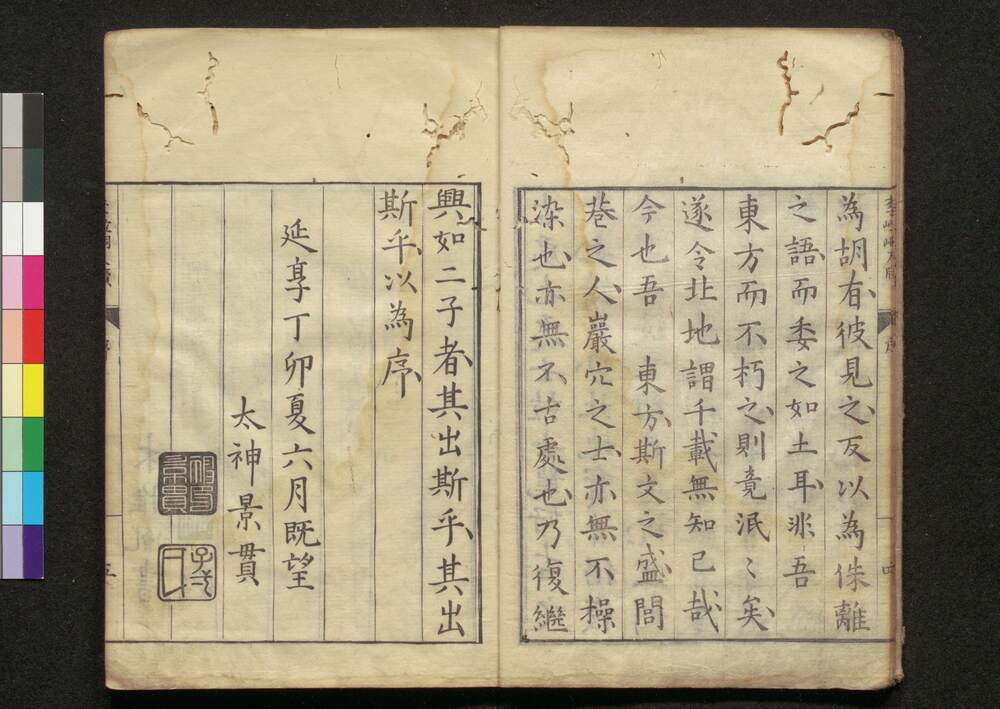 為胡有彼見之反以為侏離
之語而委之如土耳非吾
東方而不朽之則竟泯〻矣
遂令北地謂千載無知己哉
今也吾　東方斯文之盛閭
巷之人巖穴之士亦無不操
染也亦無不古處也乃復繼
興如二子者其出斯乎其出
斯乎以為序
延享丁卯夏六月既望
太神景貫